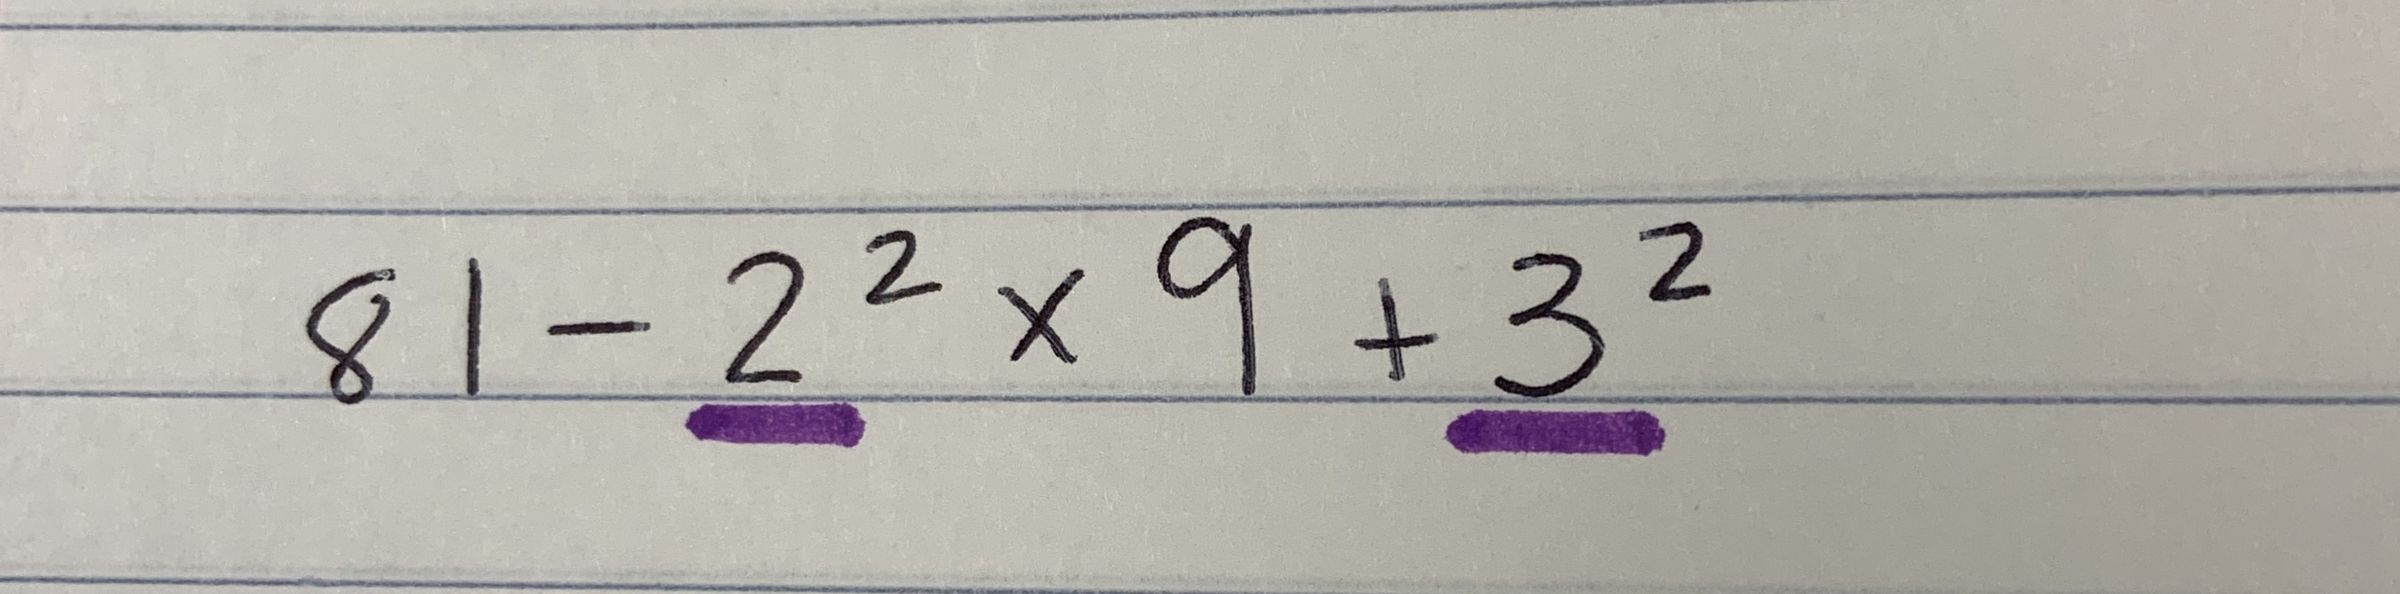 81 - 2² x 9 + 3²